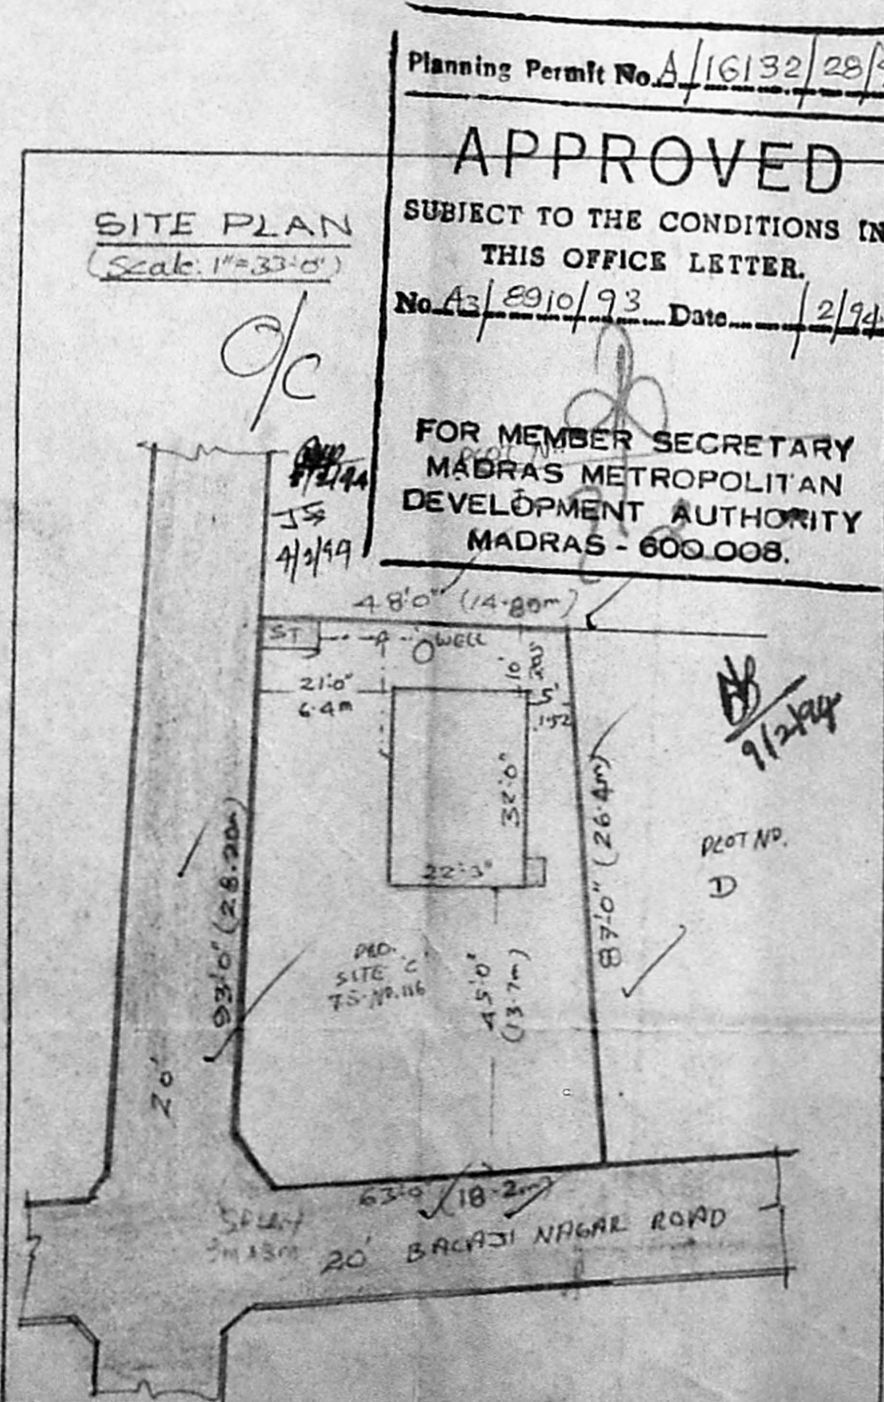 Planning Permit No. A/16132/28/
APPROVED
SUBJECT TO THE CONDITIONS IN
THIS OFFICE LETTER.
No. A3/8910/93 Date /2/94
FOR MEMBER SECRETARY
MADRAS METROPOLITAN
DEVELOPMENT AUTHORITY
MADRAS - 600.008.
SITE PLAN
(Scale: 1"=33'-0")
O/C
4/2/94
48'0" (14.80m)
ST
WELL
21'0"
6.4m
10'
5'
1.52
32'0"
22'-3"
9/2/94
PLOT NO.
D
93'0" (28.20m)
87'0" (26.4m)
PRO.
SITE 'C'
T.S. NO. 116
45'0"
(13.7m)
20'
63'0" (18.2m)
SPLAY
3m x 3m
20' BALAJI NAGAR ROAD